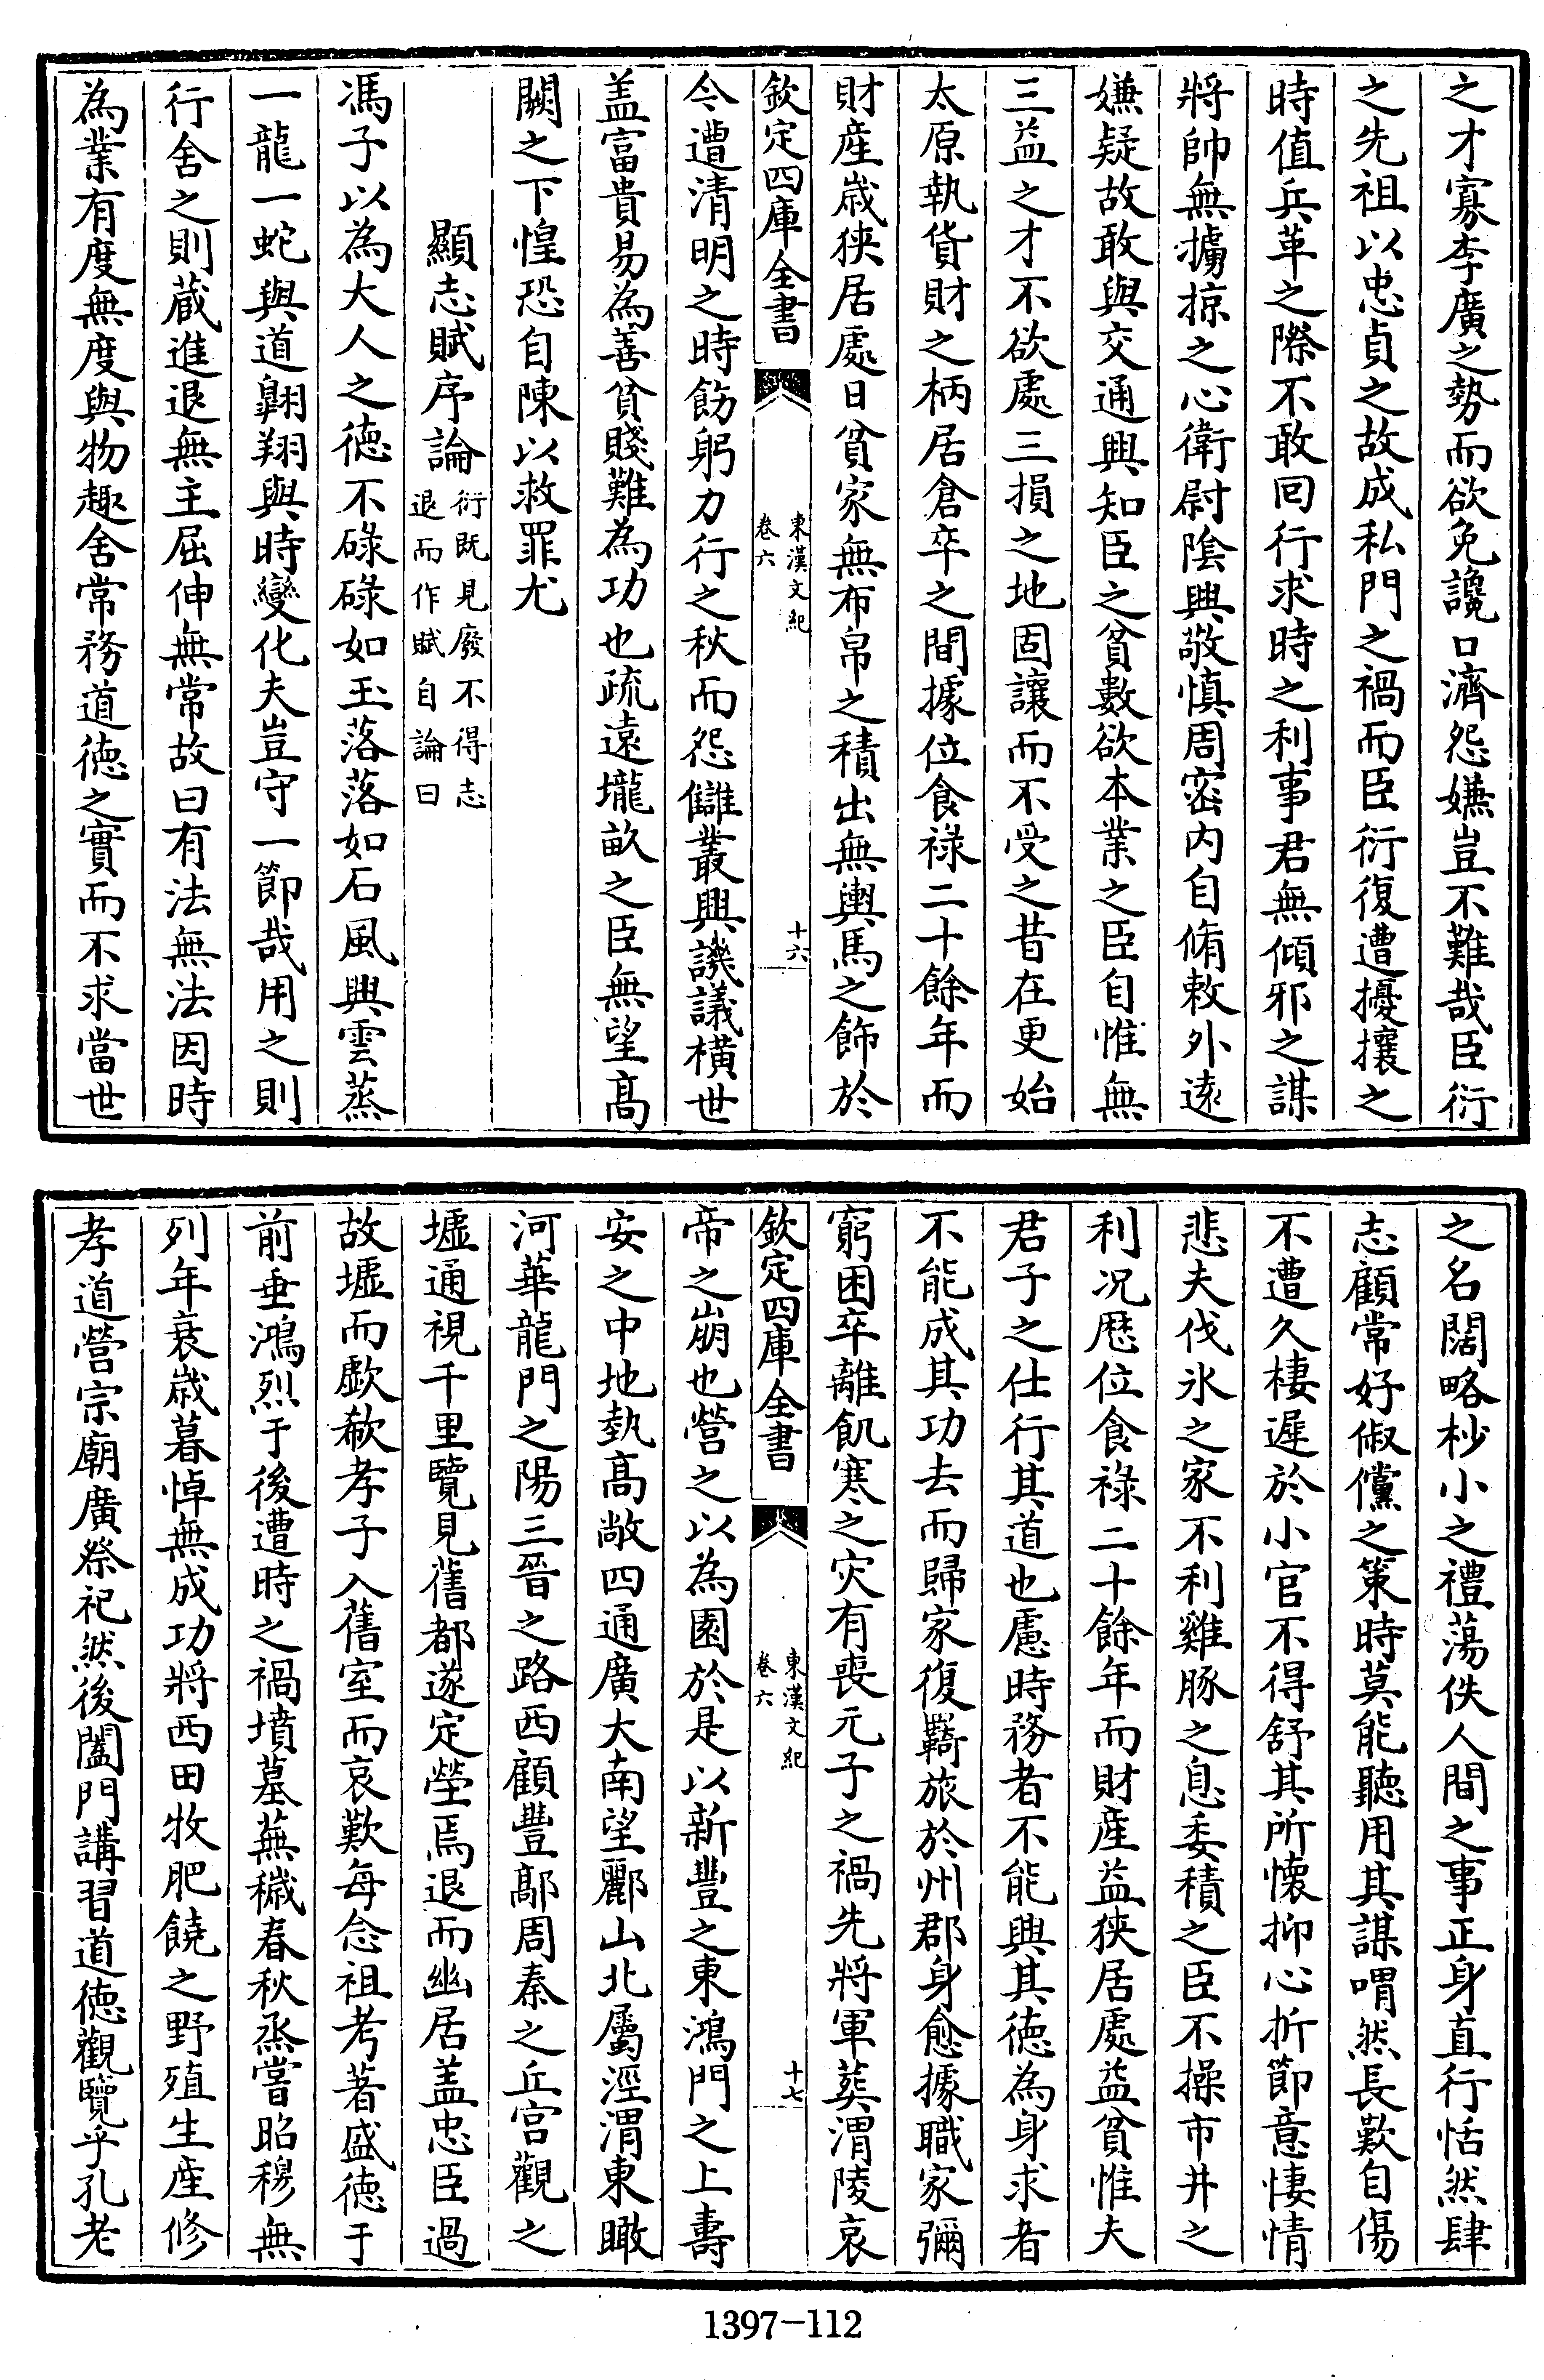 之才寡李廣之勢而欲免讒口濟怨嫌豈不難哉臣衍
之先祖以忠貞之故成私門之禍而臣衍復遭擾攘之
時值兵革之際不敢回行求時之利事君無傾邪之謀
將帥無擄掠之心衛尉陰興敬慎周密内自脩敕外遠
嫌疑故敢與交通興知臣之貧數欲本業之臣自惟無
三益之才不欲處三損之地固讓而不受之昔在更始
太原執貨財之柄居倉卒之間據位食祿二十餘年而
財産歲狹居處日貧家無布帛之積出無輿馬之飾於
欽定四庫全書
東漢文紀
卷六
十六
今遭清明之時飭躬力行之秋而怨讎叢興譏議横世
盖富貴易為善貧賤難為功也疏遠壠畝之臣無望髙
闕之下惶恐自陳以救罪尤
顯志賦序論
衍既見廢不得志
退而作賦自論曰
馮子以為大人之徳不碌碌如玉落落如石風興雲蒸
一龍一蛇與道翺翔與時變化夫豈守一節哉用之則
行舍之則藏進退無主屈伸無常故曰有法無法因時
為業有度無度與物趣舍常務道徳之實而不求當世
之名闊略杪小之禮蕩佚人間之事正身直行恬然肆
志顧常好俶儻之策時莫能聽用其謀喟然長歎自傷
不遭久棲遲於小官不得舒其所懷抑心折節意悽情
悲夫伐氷之家不利雞豚之息委積之臣不操市井之
利况歴位食祿二十餘年而財産益狹居處益貧惟夫
君子之仕行其道也慮時務者不能興其徳為身求者
不能成其功去而歸家復羇旅於州郡身愈據職家彌
窮困卒離飢寒之灾有喪元子之禍先將軍葬渭陵哀
欽定四庫全書
東漢文紀
卷六
十七
帝之崩也營之以為園於是以新豐之東鴻門之上壽
安之中地埶髙敞四通廣大南望酈山北屬涇渭東瞰
河華龍門之陽三晉之路西顧豐鄗周秦之丘宫觀之
墟通視千里覽見舊都遂定塋焉退而幽居盖忠臣過
故墟而歔欷孝子入舊室而哀歎每念祖考著盛徳于
前垂鴻烈于後遭時之禍墳墓蕪穢春秋烝嘗昭穆無
列年衰歲暮悼無成功將西田牧肥饒之野殖生産修
孝道營宗廟廣祭祀然後闔門講習道徳觀覽乎孔老
1397-112